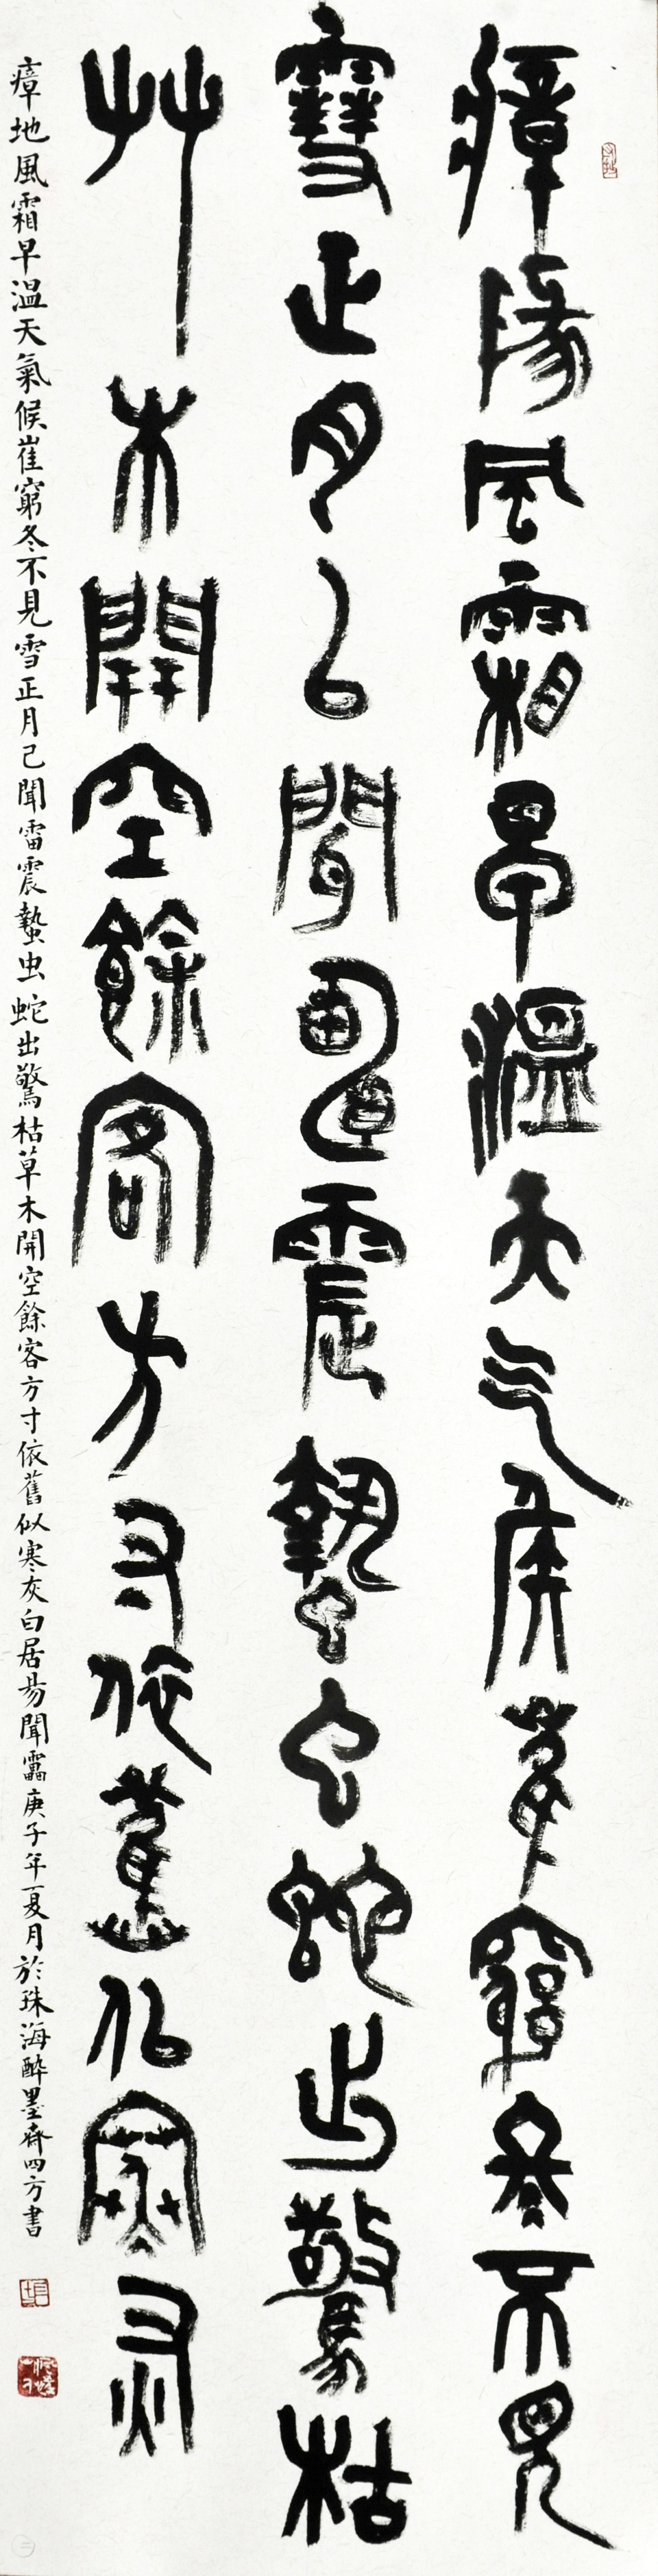 瘴地風霜早溫天气候崔窮冬不見
雪正月已聞雷震蟄虫蛇出驚枯
艸木開空餘客方寸依舊似寒灰
瘴地風霜早溫天氣候崔窮冬不見雪正月己聞雷震蟄虫蛇出驚枯草木開空餘客方寸依舊似寒灰白居易聞靁庚子年夏月於珠海醉墨齋四方書